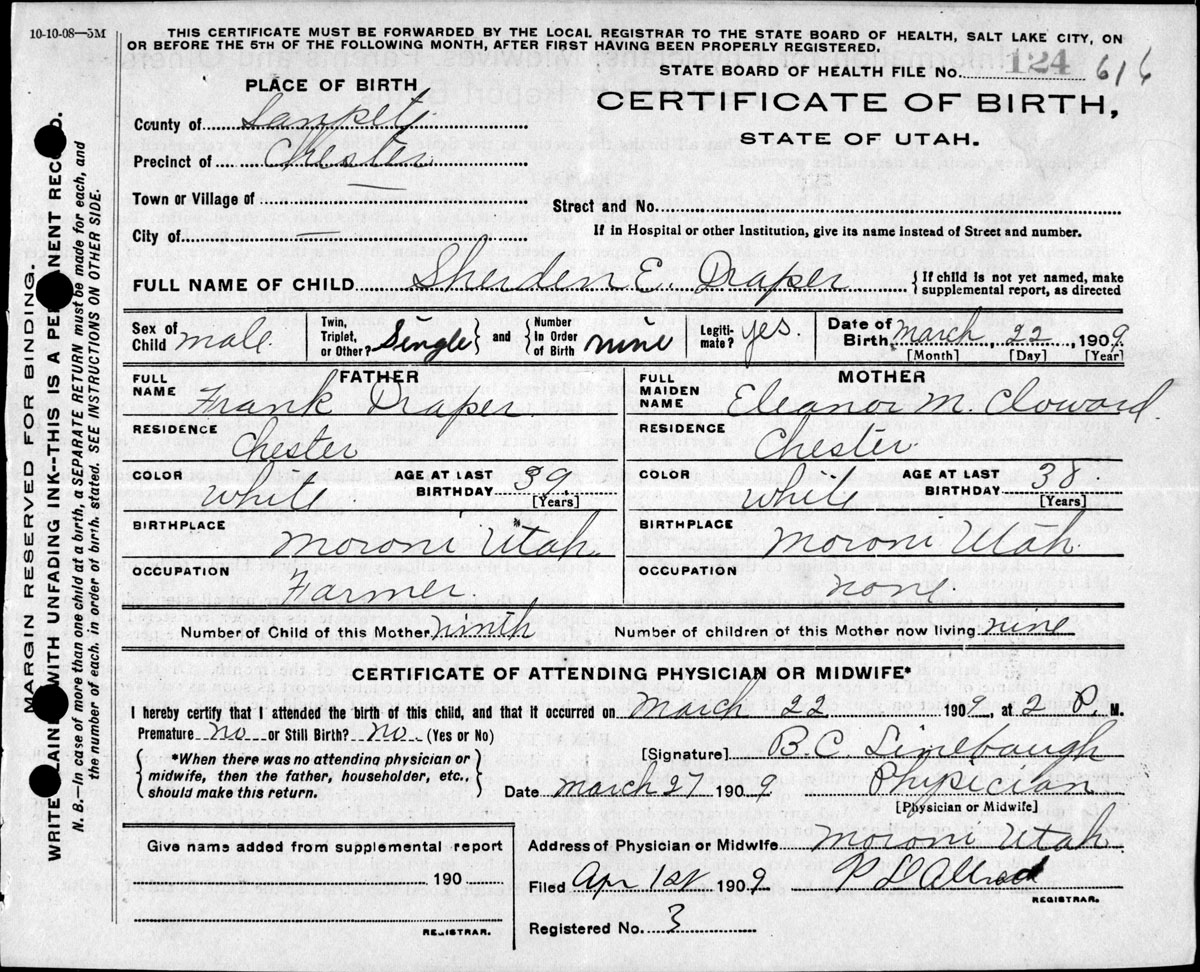 10-10-08—5M
THIS CERTIFICATE MUST BE FORWARDED BY THE LOCAL REGISTRAR TO THE STATE BOARD OF HEALTH, SALT LAKE CITY, ON
OR BEFORE THE 5TH OF THE FOLLOWING MONTH, AFTER FIRST HAVING BEEN PROPERLY REGISTERED.
STATE BOARD OF HEALTH FILE No. 124 616
PLACE OF BIRTH
CERTIFICATE OF BIRTH,
STATE OF UTAH.
County of Sanpete
Precinct of Chester
Town or Village of —
Street and No.
City of —
If in Hospital or other Institution, give its name instead of Street and number.
FULL NAME OF CHILD Sherden E. Draper {If child is not yet named, make supplemental report, as directed
Sex of Child male Twin, Triplet, or Other? Single } and { Number In Order of Birth nine Legiti-mate? yes. Date of Birth March 22, 1909.
[Month] [Day] [Year]
FATHER
MOTHER
FULL NAME Frank Draper
FULL MAIDEN NAME Eleanor M. Cloward.
RESIDENCE Chester
RESIDENCE Chester
COLOR White AGE AT LAST BIRTHDAY 39. [Years]
COLOR White AGE AT LAST BIRTHDAY 38. [Years]
BIRTHPLACE Moroni Utah.
BIRTHPLACE Moroni Utah.
OCCUPATION Farmer.
OCCUPATION none.
Number of Child of this Mother ninth Number of children of this Mother now living nine
CERTIFICATE OF ATTENDING PHYSICIAN OR MIDWIFE*
I hereby certify that I attended the birth of this child, and that it occurred on March 22 1909, at 2 P. M.
Premature no or Still Birth? no. (Yes or No)
[Signature] B.C. Linebaugh
{*When there was no attending physician or
midwife, then the father, householder, etc.,
should make this return.}
Date March 27 1909 Physician
[Physician or Midwife]
Give name added from supplemental report
Address of Physician or Midwife Moroni Utah
190
Filed Apr 1st 1909 P D Allred
REGISTRAR.
REGISTRAR.
Registered No. 3
MARGIN RESERVED FOR BINDING.
WRITE AIN WITH UNFADING INK--THIS IS A PE NENT REC D.
N. B.—In case of more than one child at a birth, a SEPARATE RETURN must be made for each, and
the number of each, in order of birth, stated. SEE INSTRUCTIONS ON OTHER SIDE.